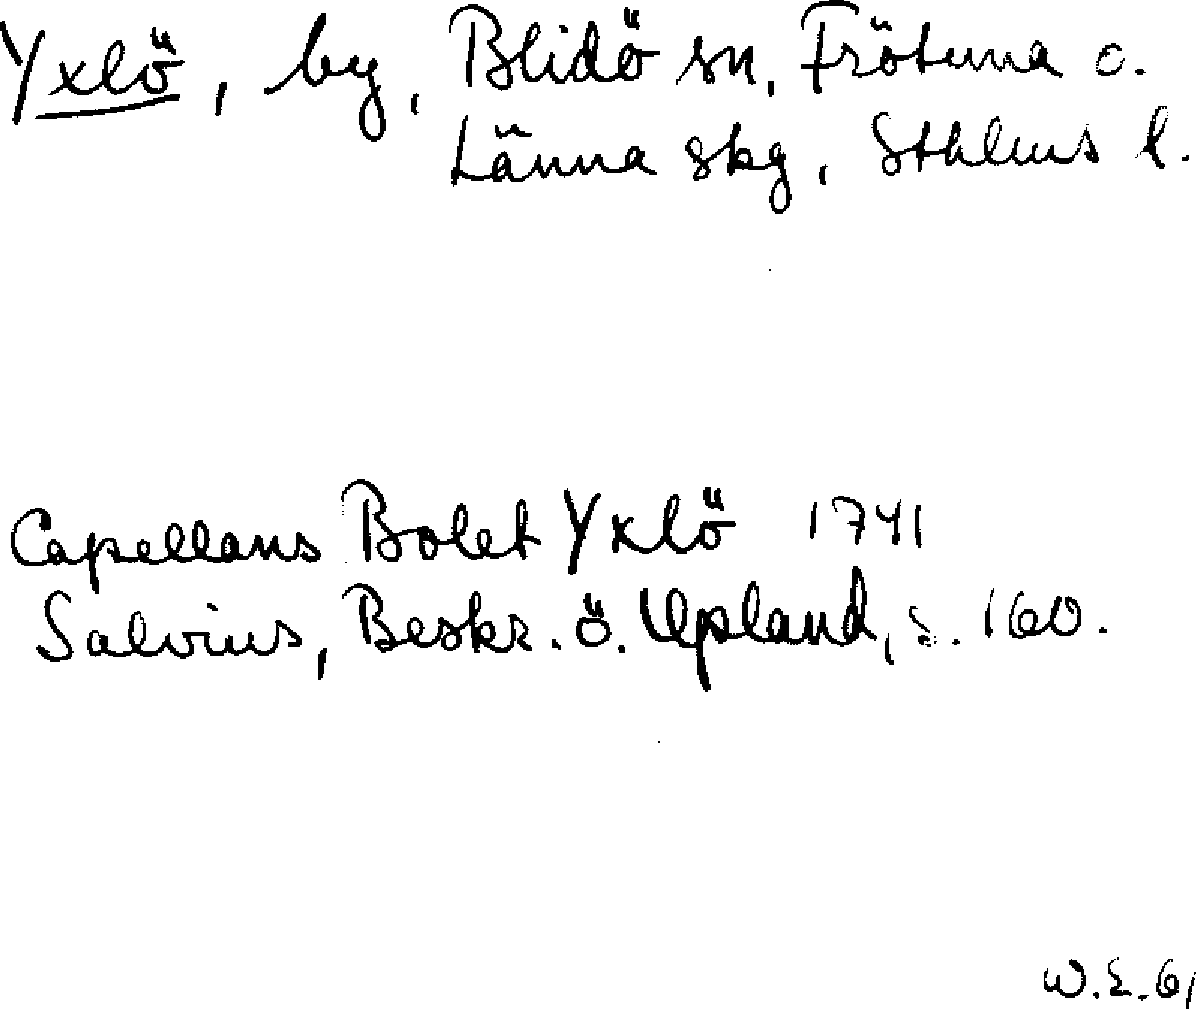 Yxlö, by, Blidö sn, Frötuna o.
Länna skg, Sthlms l.
Capellans Bolet Yxlö 1741
Salvius, Beskr. ö. Upland, s. 160.
W.E. 61